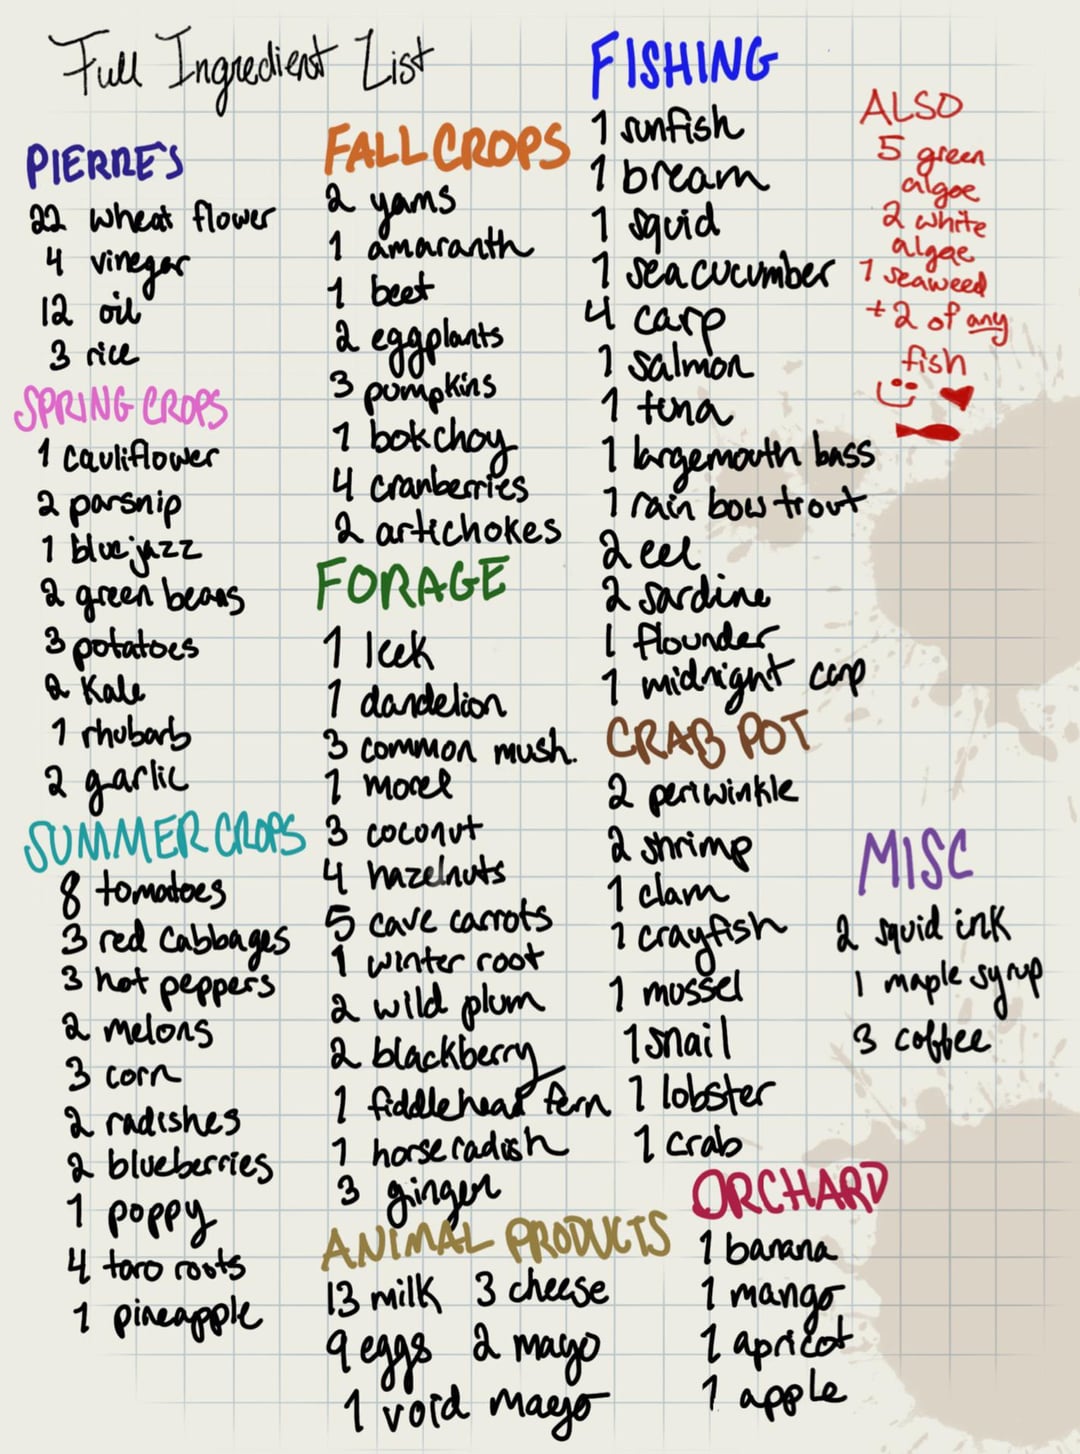 Full Ingredient List
PIERRE'S
22 wheat flower
4 vinegar
12 oil
3 rice
SPRING CROPS
1 cauliflower
2 parsnip
1 blue jazz
2 green beans
3 potatoes
2 Kale
1 rhubarb
2 garlic
SUMMER CROPS
8 tomatoes
3 red cabbages
3 hot peppers
2 melons
3 corn
2 radishes
2 blueberries
1 poppy
4 taro roots
1 pineapple
FALL CROPS
2 yams
1 amaranth
1 beet
2 eggplants
3 pumpkins
1 bok choy
4 cranberries
2 artichokes
FORAGE
1 leek
1 dandelion
3 common mush.
1 morel
3 coconut
4 hazelnuts
5 cave carrots
1 winter root
2 wild plum
2 blackberry
1 fiddlehead fern
1 horseradish
3 ginger
ANIMAL PRODUCTS
13 milk 3 cheese
9 eggs 2 mayo
1 void mayo
FISHING
1 sunfish
1 bream
1 squid
1 sea cucumber
4 carp
1 salmon
1 tuna
1 largemouth bass
1 rain bow trout
2 eel
2 sardine
1 flounder
1 midnight carp
CRAB POT
2 periwinkle
2 shrimp
1 clam
1 crayfish
1 mussel
1 snail
1 lobster
1 crab
ORCHARD
1 banana
1 mango
1 apricot
1 apple
ALSO
5 green
algae
2 white
algae
1 seaweed
+ 2 of any
fish
MISC
2 squid ink
1 maple syrup
3 coffee